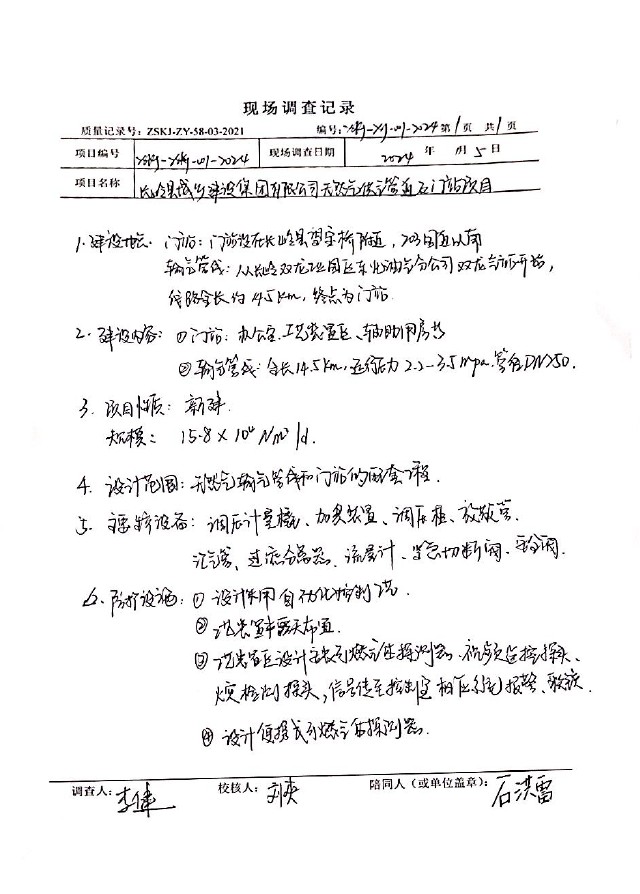 现场调查记录
质量记录号: ZSKJ-ZY-58-03-2021 编号: -01-2024 第1页 共1页
项目编号 -01-2024 现场调查日期 2024 年 月 5 日
项目名称 长岭县城乡建设集团有限公司天然气供气管道及门站项目
1. 建设地点: 门站: 门站设在长岭县 附近,
输气管线: 从长岭双龙工业园区东北油气分公司双龙 开始,
线路全长约14.5km, 终点为门站.
2. 建设内容: ①门站: 办公室、工艺装置区、辅助用房等
②输气管线: 全长14.5km, 运行压力 2.2-3.5mpa. 管径DN250.
3. 项目性质: 新建.
规模: 15.8×10⁴Nm³/d.
4. 设计范围: 天然气输气管线和门站的配套工程.
5. 主要设备: 调压计量橇、加臭装置、调压柜、放散管、
汇气管、过滤分离器、流量计、紧急切断阀、
6. 防护设施: ① 设计采用自动化控制
② 装置 露天布置.
③ 装置区设计 可燃气体探测器、视频监控探头、
检测探头, 信号传至控制室 相应 报警、联锁.
④ 设计便携式可燃气体探测器.
调查人: 校核人: 陪同人（或单位盖章）: 石洪雷